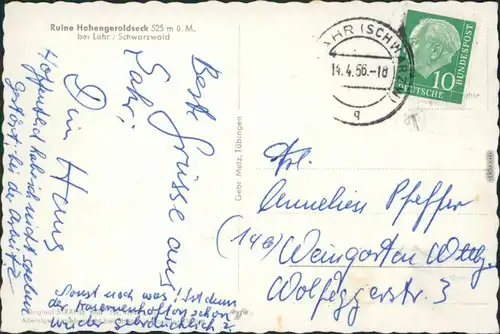 Ruine Hohengeroldseck 525 m ü. M.
bei Lahr / Schwarzwald
Beste Grüsse aus
Lahr!
Dein Hans
Hoffentlich habe ich nicht
gestört bei der Arbeit?
Sonst noch was! Ist denn
der schon
wieder gebräuchlich?
Gebr. Metz, Tübingen
LAHR (SCHWARZW)
14.4.56.-18
q
DEUTSCHE BUNDESPOST
10
Frl.
Annelies Pfeffer
(14b) Weingarten Wttbg.
Wolfeggerstr. 3